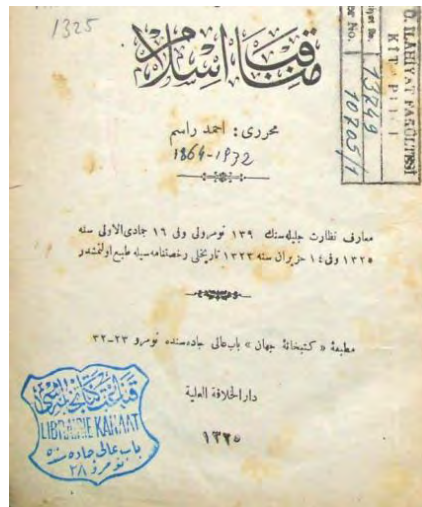 1325
مناقب اسلام
O. İLAHİYAT FAKÜLTESİ
No.
13249
10205/1
محرری : احمد راسم
1864-1932
معارف نظارت جلیله‌سنك ١٣٩ نومرولی و فی ١٦ جمادی الاولی سنه
١٣٢٥ و فی ١٤ حزیران سنه ١٣٢٣ تاریخلی رخصتنامه‌سیله طبع اولنمشدر
مطبعهٔ « كتبخانهٔ جهان » باب عالی جاده‌سنده نومرو ٢٣-٣٢
دار الخلافة العلیة
١٣٢٥
قناعت كتابخانه‌سی
LIBRAIRIE KANAAT
باب عالی جاده‌سنده
نومرو ٢٨